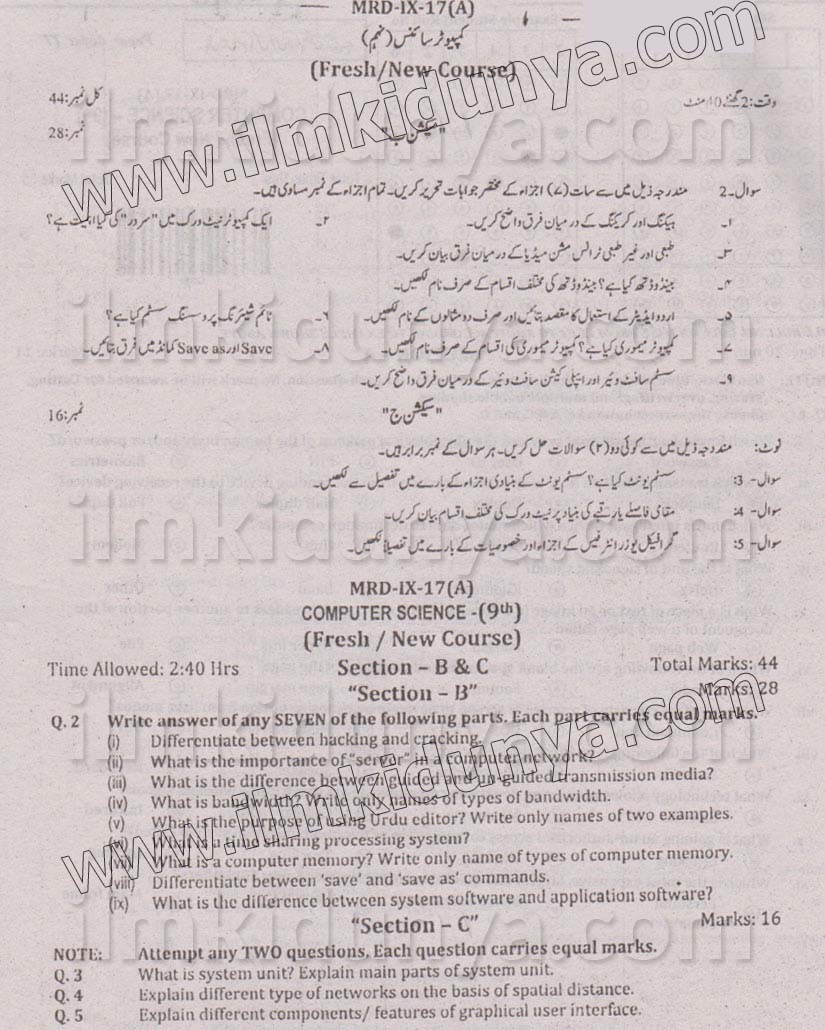 MRD-IX-17(A)
کمپیوٹر سائنس (نہم)
(Fresh/New Course)
وقت: 2 گھنٹے 40 منٹ
کل نمبر: 44
"سیکشن ب"
نمبر: 28
سوال۔2 مندرجہ ذیل میں سے سات (۷) اجزاء کے مختصر جوابات تحریر کریں۔ تمام اجزاء کے نمبر مساوی ہیں۔
۱۔ ہیکنگ اور کریکنگ کے درمیان فرق واضح کریں۔ ۲۔ ایک کمپیوٹر نیٹ ورک میں "سرور" کی کیا اہمیت ہے؟
۳۔ طبعی اور غیر طبعی ٹرانس مشن میڈیا کے درمیان فرق بیان کریں۔
۴۔ بینڈوڈتھ کیا ہے؟ بینڈوڈتھ کی مختلف اقسام کے صرف نام لکھیں۔
۵۔ اردو ایڈیٹر کے استعمال کا مقصد بتائیں اور صرف دو مثالوں کے نام لکھیں۔ ۶۔ ٹائم شیئرنگ پروسسنگ سسٹم کیا ہے؟
۷۔ کمپیوٹر میموری کیا ہے؟ کمپیوٹر میموری کی اقسام کے صرف نام لکھیں۔ ۸۔ Save اور Save as کمانڈ میں فرق بتائیں۔
۹۔ سسٹم سافٹ وئیر اور اپیلی کیشن سافٹ وئیر کے درمیان فرق واضح کریں۔
"سیکشن ج"
نمبر: 16
نوٹ: مندرجہ ذیل میں سے کوئی دو (۲) سوالات حل کریں۔ ہر سوال کے نمبر برابر ہیں۔
سوال- 3: سسٹم یونٹ کیا ہے؟ سسٹم یونٹ کے بنیادی اجزاء کے بارے میں تفصیل سے لکھیں۔
سوال- 4: مقامی فاصلے یا رقبے کی بنیاد پر نیٹ ورک کی مختلف اقسام بیان کریں۔
سوال- 5: گرافیکل یوزر انٹرفیس کے اجزاء اور خصوصیات کے بارے میں تفصیلاً لکھیں۔
MRD-IX-17(A)
COMPUTER SCIENCE -(9th)
(Fresh / New Course)
Time Allowed: 2:40 Hrs Section – B & C Total Marks: 44
"Section – B" Marks: 28
Q. 2 Write answer of any SEVEN of the following parts. Each part carries equal marks.
(i) Differentiate between hacking and cracking.
(ii) What is the importance of "server" in a computer network?
(iii) What is the difference between guided and un-guided transmission media?
(iv) What is bandwidth? Write only names of types of bandwidth.
(v) What is the purpose of using Urdu editor? Write only names of two examples.
(vi) What is a time sharing processing system?
(vii) What is a computer memory? Write only name of types of computer memory.
(viii) Differentiate between 'save' and 'save as' commands.
(ix) What is the difference between system software and application software?
"Section – C" Marks: 16
NOTE: Attempt any TWO questions. Each question carries equal marks.
Q. 3 What is system unit? Explain main parts of system unit.
Q. 4 Explain different type of networks on the basis of spatial distance.
Q. 5 Explain different components/ features of graphical user interface.
www.ilmkidunya.com
ilmkidunya.com
ilmkidunya.com
ilmkidunya.com
ilmkidunya.com
www.ilmkidunya.com
ilmkidunya.com
ilmkidunya.com